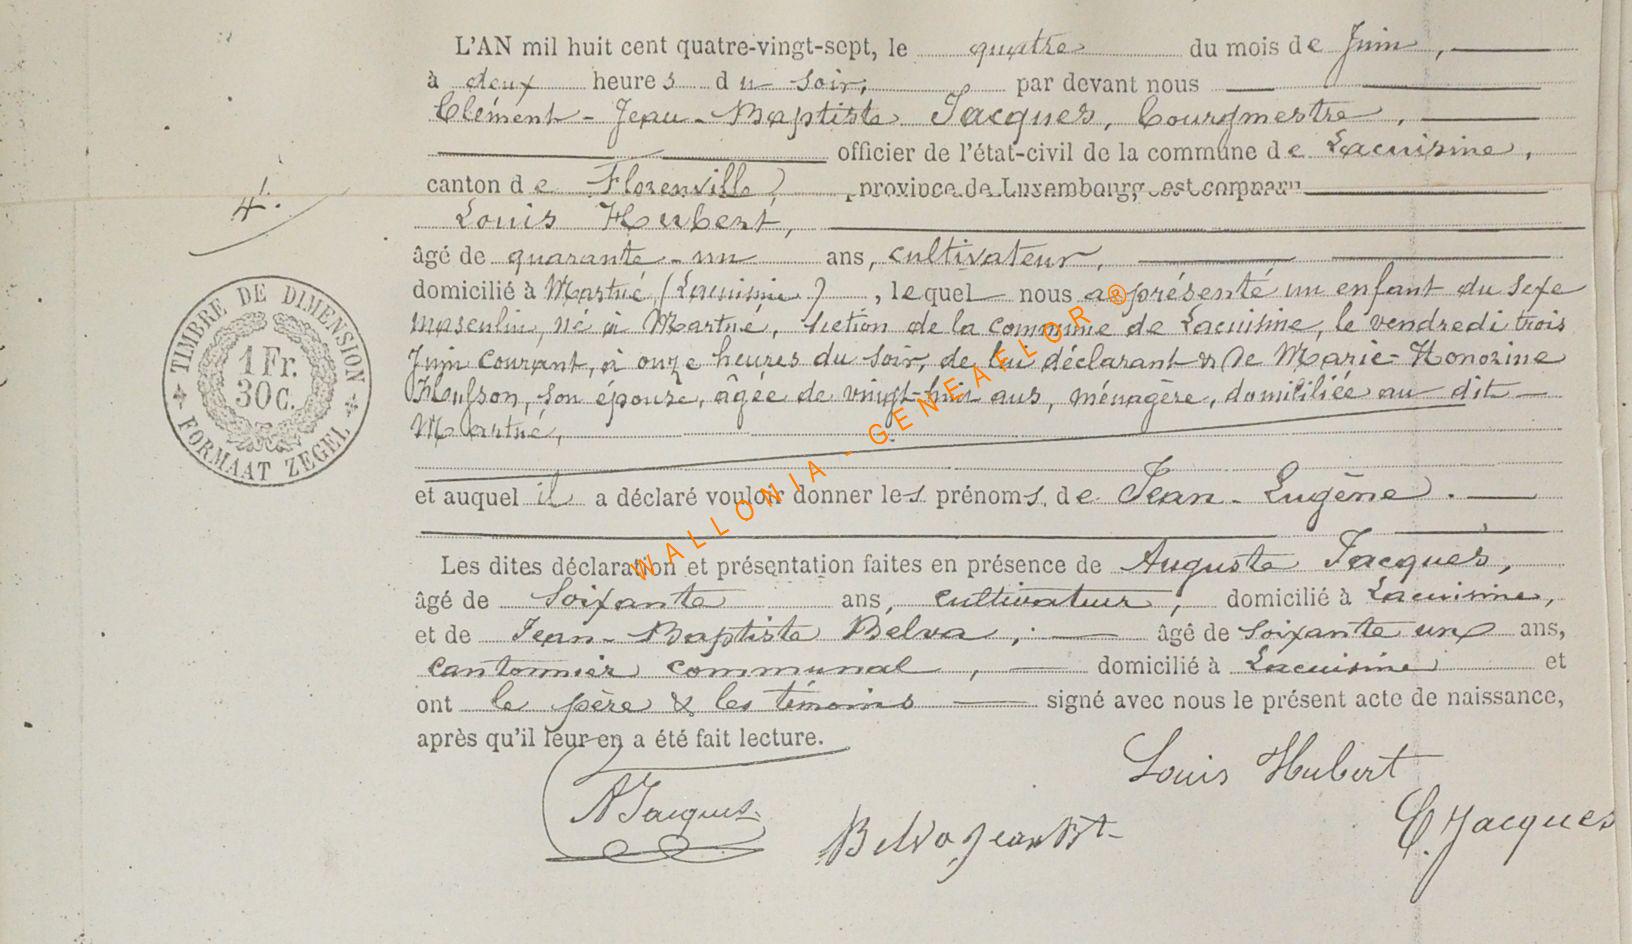 L'AN mil huit cent quatre-vingt-sept, le quatre du mois de Juin,
à deux heures du soir, par devant nous
Clément-Jean-Baptiste Jacques, Bourgmestre,
officier de l'état-civil de la commune de Lacuisine,
canton de Florenville, province de Luxembourg, est comparu
4.
Louis Hubert,
âgé de quarante-un ans, cultivateur,
domicilié à Martué (Lacuisine), lequel nous a présenté un enfant du sexe
masculin, né à Martué, section de la commune de Lacuisine, le vendredi trois
Juin courant, à onze heures du soir, de lui déclarant & de Marie-Honorine
son épouse, âgée de vingt-huit ans, ménagère, domiciliée au dit
Martué,
et auquel il a déclaré vouloir donner les prénoms de Jean-Eugène.
Les dites déclaration et présentation faites en présence de Auguste Jacques,
âgé de soixante ans, cultivateur, domicilié à Lacuisine,
et de Jean-Baptiste Belva, âgé de soixante un ans,
cantonnier communal, domicilié à Lacuisine et
ont le père & les témoins signé avec nous le présent acte de naissance,
après qu'il leur en a été fait lecture.
Louis Hubert
A Jacques
Belva Jean Bt
C. Jacques
TIMBRE DE DIMENSION
1 Fr.
30 C.
FORMAAT ZEGEL
WALLONIA - GENEAFLOR ®